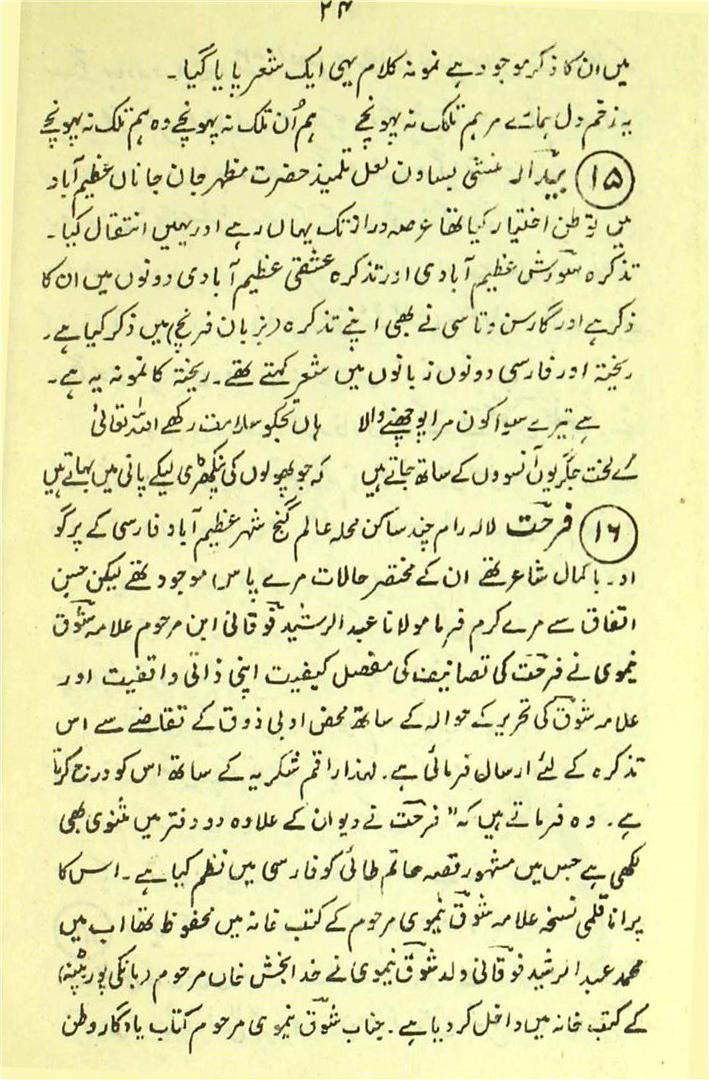 ۲۴
میں ان کا ذکر موجود ہے نمونہ کلام یہی ایک شعر پایا گیا۔
یہ زخم دل ہمارے مرہم تلک نہ پہونچے    ہم اُن تلک نہ پہونچے وہ ہم تلک نہ پہونچے
(۱۵) بیدار منشی بساون لعل تلمیذ حضرت مظہر جان جاناں عظیم آباد
میں توطن اختیار کیا تھا عرصہ دراز تک یہاں رہے اور یہیں انتقال کیا۔
تذکرہ شورش عظیم آبادی اور تذکرہ عشقی عظیم آبادی دونوں میں ان کا
ذکر ہے اور گارسن وتاسی نے بھی اپنے تذکرہ (بزبان فرنچ) میں ذکر کیا ہے۔
ریختہ اور فارسی دونوں زبانوں میں شعر کہتے تھے۔ ریختہ کا نمونہ یہ ہے۔
ہے تیرے سوا کون مرا پوچھنے والا    ہاں تجکو سلامت رکھے اللہ تعالیٰ
کے لخت جگر یوں آنسووں کے ساتھ جاتے ہیں    کہ جو پھولوں کی نپکھڑی لیکے پانی میں بہاتے ہیں
(۱۶) فرحت لالہ رام چند ساکن محلہ عالم گنج شہر عظیم آباد فارسی کے پرگو
اور باکمال شاعر تھے ان کے مختصر حالات مرے پاس موجود تھے لیکن حسن
اتفاق سے مرے کرم فرما مولانا عبد الرشید فوقانی ابن مرحوم علامہ شوق
نیموی نے فرحت کی تصانیف کی مفصل کیفیت اپنی ذاتی واقفیت اور
علامہ شوق کی تحریر کے حوالہ کے ساتھ محض ادبی ذوق کے تقاضے سے اس
تذکرہ کے لئے ارسال فرمائی ہے۔ لہذا راقم شکریہ کے ساتھ اس کو درج کرتا
ہے۔ وہ فرماتے ہیں کہ" فرحت نے دیوان کے علاوہ دو دفتر میں مثنوی بھی
لکھی ہے جس میں مشہور قصہ حاتم طائی کو فارسی میں نظم کیا ہے۔ اس کا
پرانا قلمی نسخہ علامہ شوق نیموی مرحوم کے کتب خانہ میں محفوظ تھا اب میں
محمد عبد الرشید فوقانی ولد شوق نیموی نے خدا بخش خاں مرحوم (بانکی پور پٹنہ)
کے کتب خانہ میں داخل کر دیا ہے۔ جناب شوق نیموی مرحوم کتاب یادگار وطن